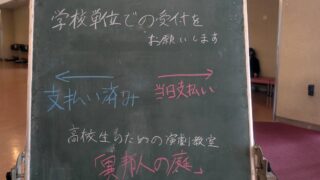 学校単位での受付を
お願いします
← →
支払い済み 当日支払い
高校生のための演劇教室
「異邦人の庭」